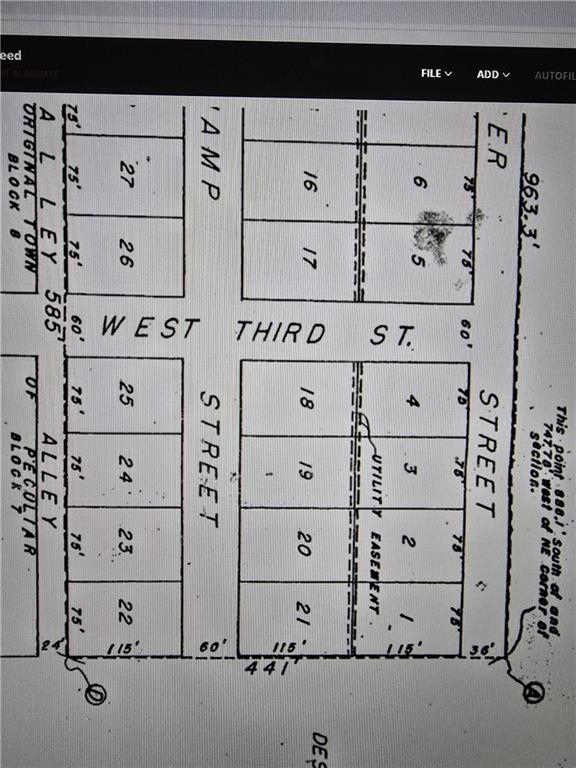 eed
FILE
ADD
AUTOFIL
75'
ALLEY
ORIGINAL TOWN
BLOCK 8
75'
27
'AMP
16
6
75'
ER
963.3'
75'
26
17
5
75'
585'
60'
WEST THIRD ST.
60'
This point 888.1' South of and
747.78' west of NE Corner of
Section.
OF PECULIAR
BLOCK 7
ALLEY
75'
25
STREET
18
4
75'
STREET
75'
24
19
3
75'
UTILITY EASEMENT
75'
23
20
2
75'
75'
22
21
1
75'
24'
115'
60'
115'
115'
36'
441'
D
A
DES